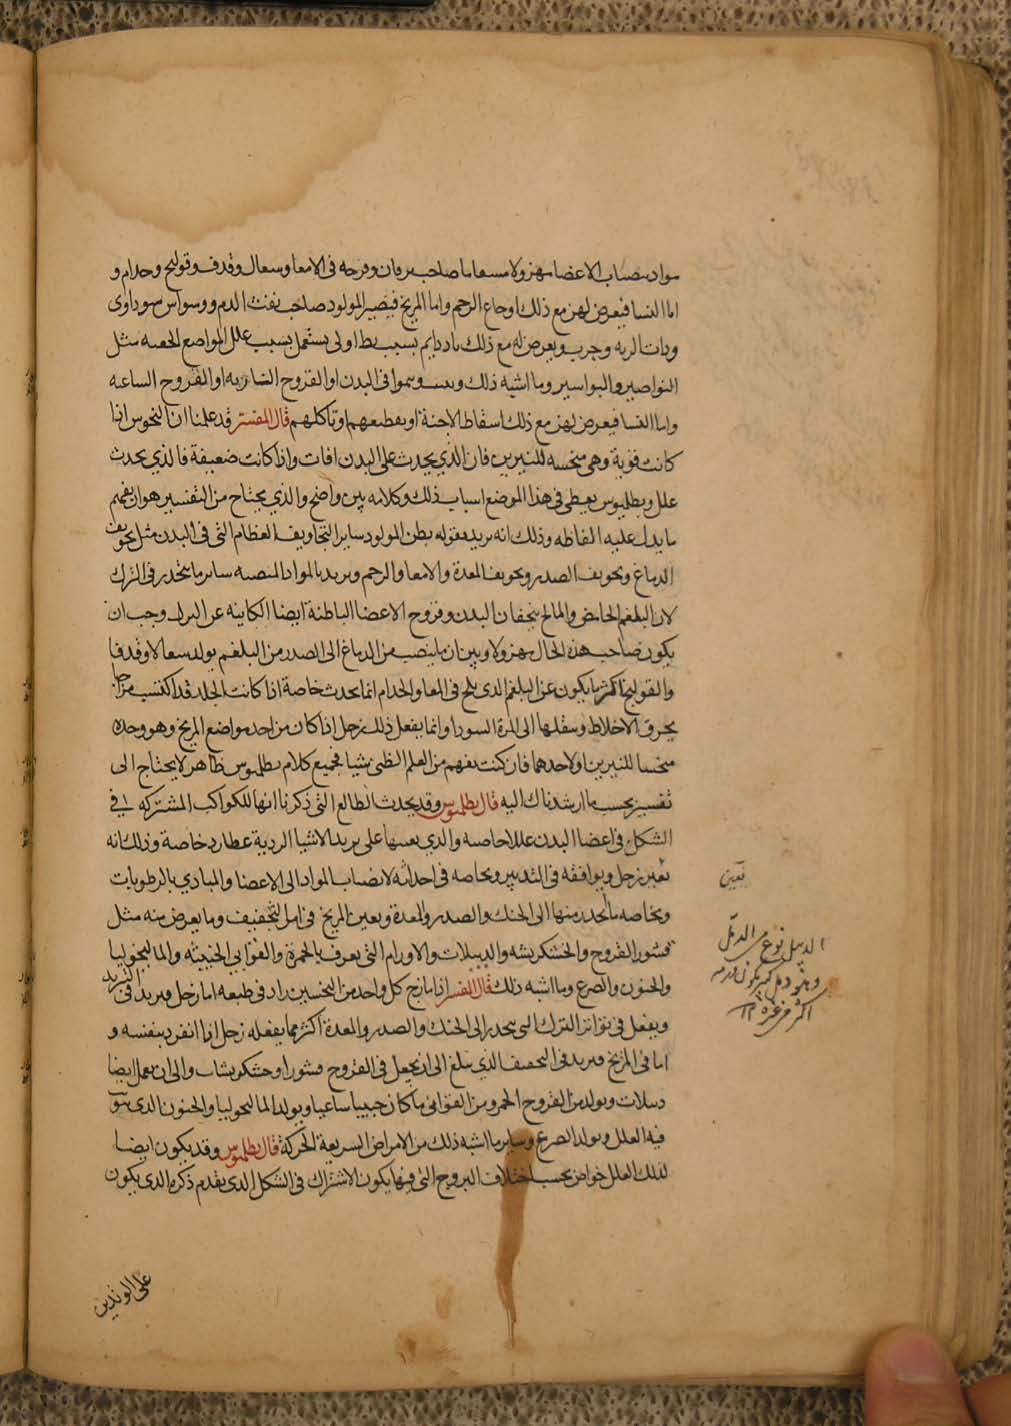 مواد ينصباب الاعضا مهزولا مسعاما صاحب يرقان وقرحه فى الامعا وسعال وقذف وقولنج وجذام و
اما النسا فيعرض لهن مع ذلك اوجاع الرحم واما المريخ فيصير المولود صاحب نفث الدم ووسواس سوداوى
وذات الريه وجرب ويعرض له مع ذلك دايم بسبب بط او كى يستعمل بسبب علل المواضع الخفيه مثل
النواصير والبواسير وما اشبه ذلك فى البدن او القروح الضاربه او القروح الساعيه
واما النسا فيعرض لهن مع ذلك اسقاط الاجنة او تقطيعهم او تاكلهم قال المفسر قد علمنا ان النحوس اذا
كانت قوية وهى منحسه للنيرين فان الذى يحدث على البدن افات واذا كانت ضعيفة فالذى يحدث
علل وبطلميوس يعطى فى هذا الموضع اسباب ذلك وكلامه بين واضح والذى يحتاج من التفسير هو ان نفهم
ما يدل عليه الفاظه وذلك انه يريد بقوله بطن المولود ساير التجاويف العظام التى فى البدن مثل تجويف
الدماغ وتجويف الصدر وتجويف المعدة والامعا والرحم ويريد بالمواد المنصبه ساير ما ينحدر فى النزل
لان البلغم الحامض والمالح يجففان البدن وقروح الاعضا الباطنة ايضا الكاينه عن النزل وجب ان
يكون صاحب هذه الحال مهزولا وبين ان ما ينصب من الدماغ الى الصدر من البلغم يولد سعالا وقذفا
والقولنج اكثر ما يكون عن البلغم الذى يلج فى المعا والجذام انما يحدث خاصة اذا كانت الجلد قد اكتسب مزاجا
يحرق الاخلاط وينقلها الى المرة السودا وانما يفعل ذلك زحل اذا كان من احد مواضع المريخ وهو وحده
منحسا للنيرين او لاحدهما فان كنت تفهم من العلم الطبى شيا فجميع كلام بطلميوس ظاهر لا يحتاج الى
تفسير بحسب ما ارشدناك اليه قال بطلميوس وقد يحدث الطالع التى ذكرنا انها للكواكب المشتركه فى
الشكل فى اعضا البدن عللا خاصه والذى يعينها على يريد الاشيا الردية عطارد خاصة وذلك انه
يعين زحل ويوافقه فى التدبير وبخاصه فى احداثه لانصباب المواد الى الاعضا والمبادى بالرطوبات
وبخاصه ما انحدر منها الى الحنك والصدر والمعدة ويعين المريخ فى امر التجفيف وما يعرض منه مثل
قشور القروح والخشكريشه والدبيلات والاورام التى يعرف بالحمرة والقوابى الخبيثه والماليخوليا
والجنون والصرع وما اشبه ذلك قال المفسر اذا مازج كل واحد من النحسين زاد فى طبعه اما زحل فيزيد فى التبريد
ويفعل فى تواتر النزل التى ينحدر الى الحنك والصدر والمعدة اكثر مما يفعله زحل اذا انفرد بنفسه و
اما فى المريخ فيزيد فى التجفيف الذى يبلغ الى ان يجعل فى القروح قشورا وخشكريشات والى ان يعمل ايضا
دبيلات ويولد من القروح الحمر ومن القوابى ما كان خبيثا ساعيا ويولد الماليخوليا والجنون الذى
فيه العلل ويولد الصرع وساير ما اشبه ذلك من الامراض السريعة الحركة قال بطلميوس وقد يكون ايضا
لتلك العلل خواص بحسب اختلاف البروج التى فيها يكون الاشتراك فى الشكل الذى يقدم ذكره الذى يكون
يعين
الدبيل نوع من الدمل
وهو دمل كبير يكون
على الوتدين